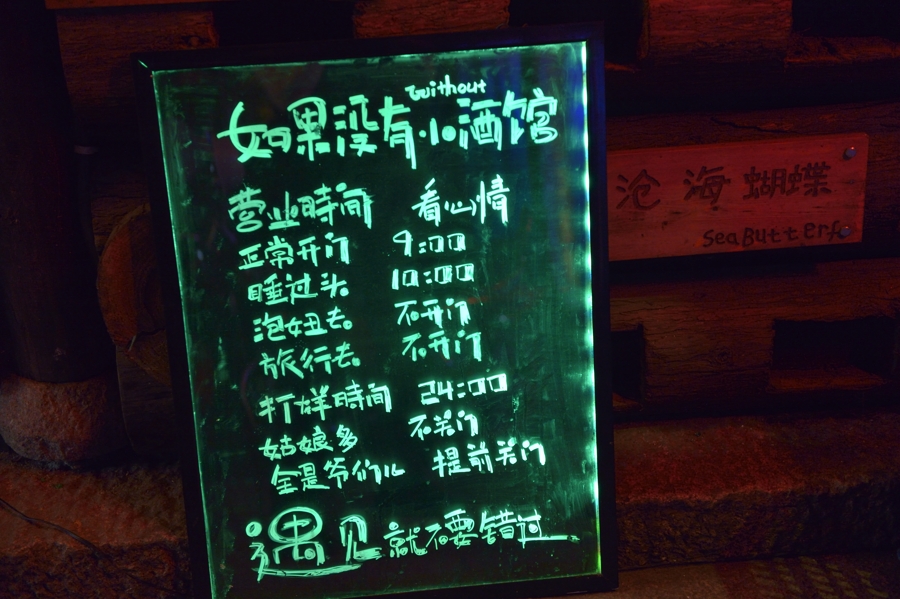 without
如果没有小酒馆
营业時间 看心情
正常开门 9:00
睡过头 10:00
泡妞去 不开门
旅行去 不开门
打烊時间 24:00
姑娘多 不关门
全是爷们儿 提前关门
遇见就不要错过
沧海蝴蝶
SeaButterf